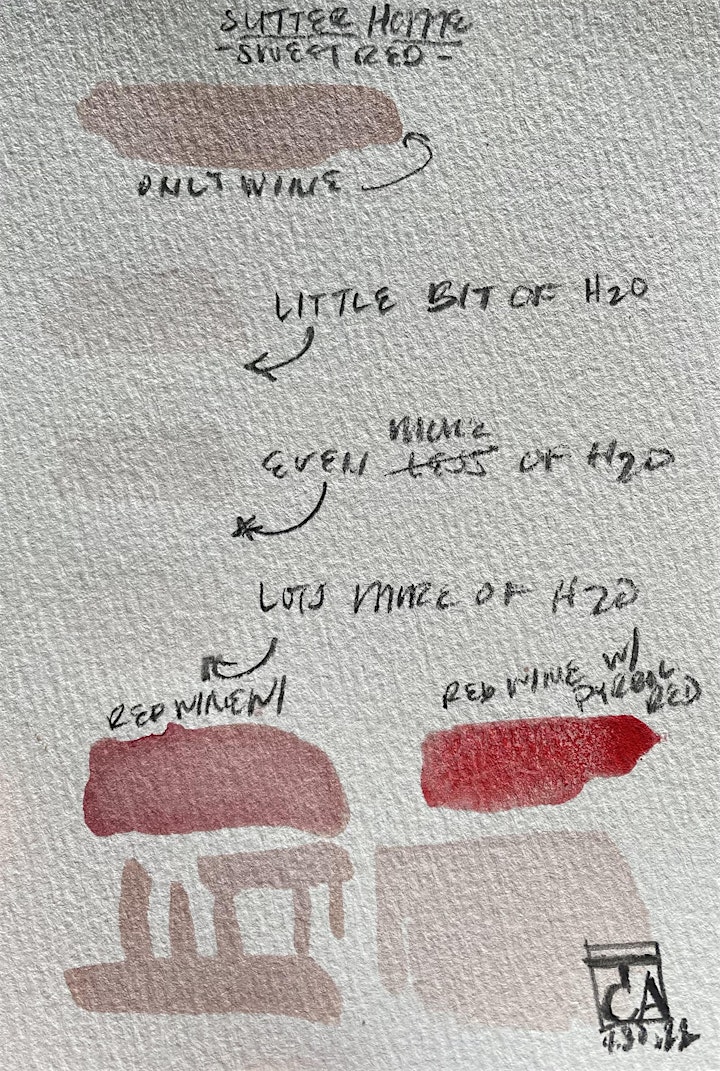 SUTTER HOME
-SWEET RED-
ONLY WINE
LITTLE BIT OF H2O
MORE
EVEN LESS OF H2O
LOTS MORE OF H2O
RED WINE W/
RED WINE W/
PYRROL
RED
CA